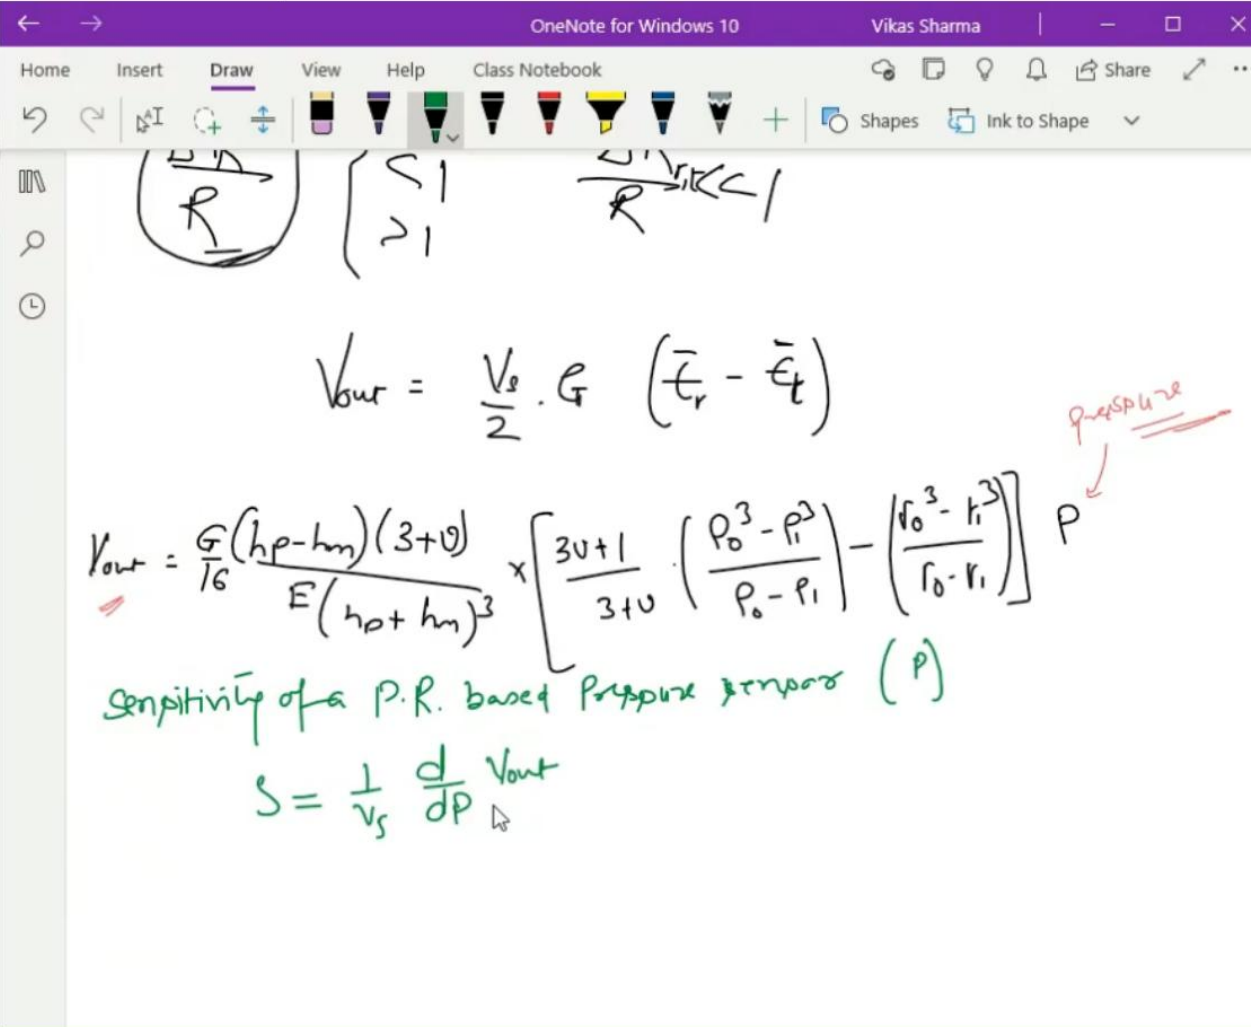 OneNote for Windows 10 Vikas Sharma
Home Insert Draw View Help Class Notebook Share
Shapes Ink to Shape
R { <1 R <<1
>1
Vout = Vs/2 . G (ε̄r - ε̄t)
pressure
Vout = G/16 (hp-hm)(3+υ) / E(hp+hm)^3 × [ 3υ+1 / 3+υ . (ρ0^3 - ρ1^3 / ρ0 - ρ1) - (r0^3 - r1^3 / r0 - r1) ] P
Sensitivity of a P.R. based Pressure sensor (P)
S = 1/Vs d/dP Vout